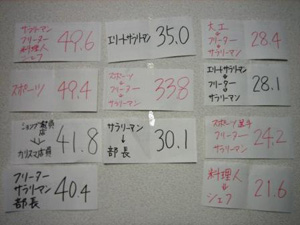 サラリーマン
フリーター
料理人
シェフ
49.6
スポーツ
49.4
ショップ店員
↓
カリスマ店員
41.8
フリーター
サラリーマン
部長
40.4
エリートサラリーマン
35.0
スポーツ
↓
フリーター
↓
サラリーマン
33.8
サラリーマン
↓
部長
30.1
大工
↓
フリーター
↓
サラリーマン
28.4
エリートサラリーマン
↓
フリーター
↓
サラリーマン
28.1
スポーツ選手
フリーター
サラリーマン
24.2
料理人
↓
シェフ
21.6